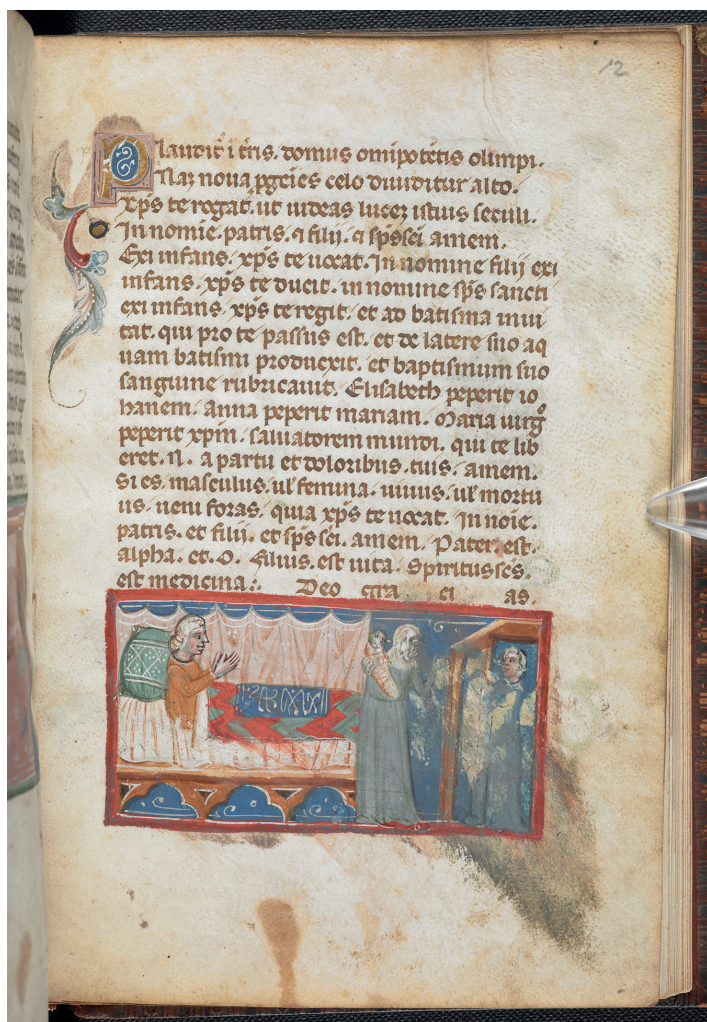 12
Plaudit̃ ĩ tris. domus omipotẽtis olimpi.
Naꝫ noua ꝓgẽies celo diuiditur alto.
xp̃s te rogat. ut uideas luceꝫ istius seculi.
In nomie. patris. ⁊ filij. ⁊ sp̃s sc̃i amem.
Exi infans. xp̃s te uocat. In nomine filij exi
infans. xp̃s te ducit. in nomine sp̃s sancti
exi infans. xp̃s te regit. et ad batisma inui
tat. qui pro te passus est. et de latere suo aq
uam batismi producxit. et baptismum suo
sanguine rubricauit. Elisabeth peperit io
hanem. anna peperit mariam. Maria uirgͦ
peperit xp̃m. saluatorem mundi. qui te lib
eret. N. a partu et doloribus. tuis. amem.
Si es. masculus. ul̃ femina. uiuus. ul̃ mortu
us. ueni foras. quia xp̃s te uocat. In noĩe.
patris. et filii. et sp̃s sc̃i. amem. Pater. est.
alpha. et. O. filius. est uita. Spiritus sc̃s.
est medicina:. Deo gra ci as.